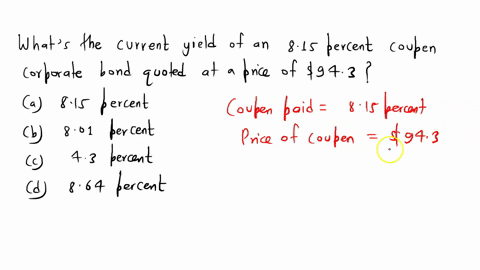 What's the current yield of an 8.15 percent coupen
corporate bond quoted at a price of $94.3 ?
(a) 8.15 percent
(b) 8.01 percent
(c) 4.3 percent
(d) 8.64 percent
Coupen paid = 8.15 percent
Price of coupen = $94.3